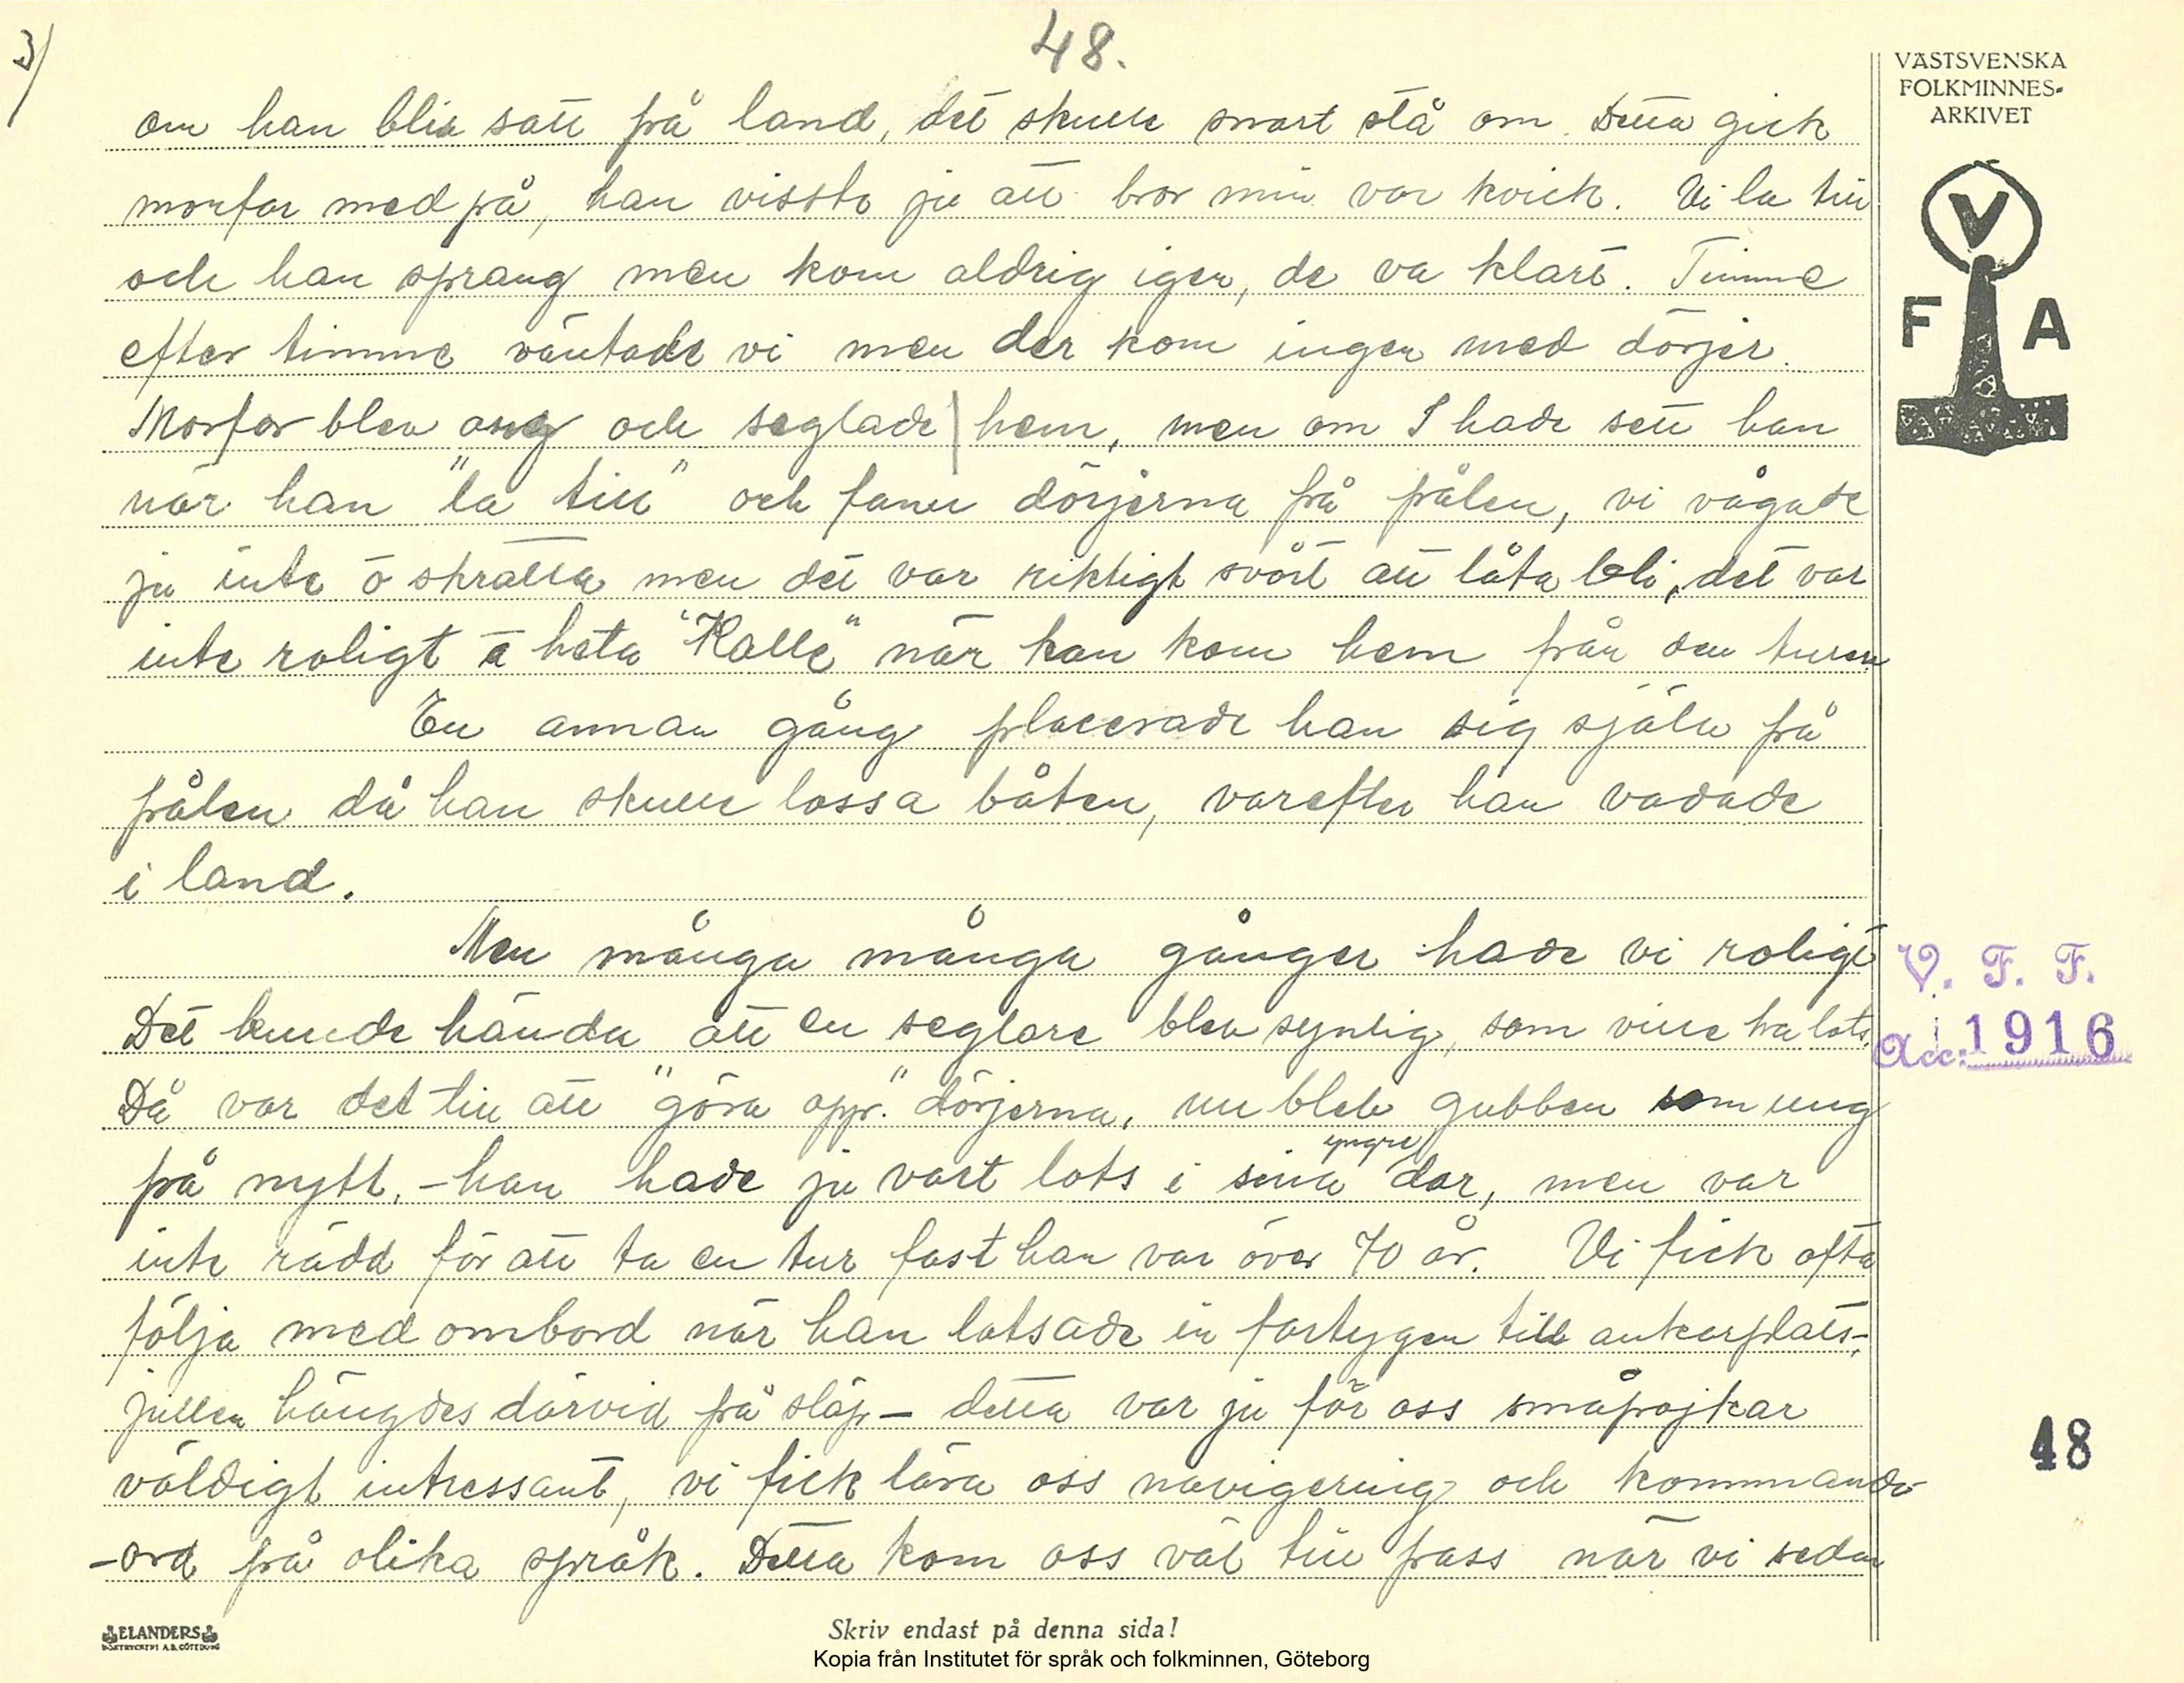 3/
48.
VÄSTSVENSKA
FOLKMINNES-
ARKIVET
V
F A
om han blev satt på land, det skulle snart stå om. Detta gick
morfar med på, han visste ju att bror min var kvick. Vi la till
och han sprang men kom aldrig igen, de va klart. Timme
efter timme väntade vi men der kom ingen med dörjer.
Morfar blev arg och seglade hem, men om I hade sett han
när han "la till" och fann dörjerna på pålen, vi vågade
ju inte ö skratta men det var riktigt svårt att låta bli, det var
inte roligt å heta "Kalle" när han kom hem från den turen
En annan gång placerade han sig själv på
pålen då han skulle lossa båten, varefter han vadade
i land.
Men många många gånger hade vi roligt
Det kunde hända att en seglare blev synlig, som ville ha lots.
Då var det till att "göra opp." dörjerna, nu blev gubben som ung
på nytt, - han hade ju vart lots i sina yngre dar, men var
inte rädd för att ta en tur fast han var över 70 år. Vi fick ofta
följa med ombord när han lotsade in fartygen till ankarplats-,
jullen hängdes därvid på släp - detta var ju för oss småpojkar
väldigt intressant, vi fick lära oss navigering och kommando-
-ord på olika språk. Detta kom oss väl till pass när vi sedan
V. F. F.
Acc: 1916
48
ELANDERS
BOKTRYCKERI A.B. GÖTEBORG
Skriv endast på denna sida!
Kopia från Institutet för språk och folkminnen, Göteborg